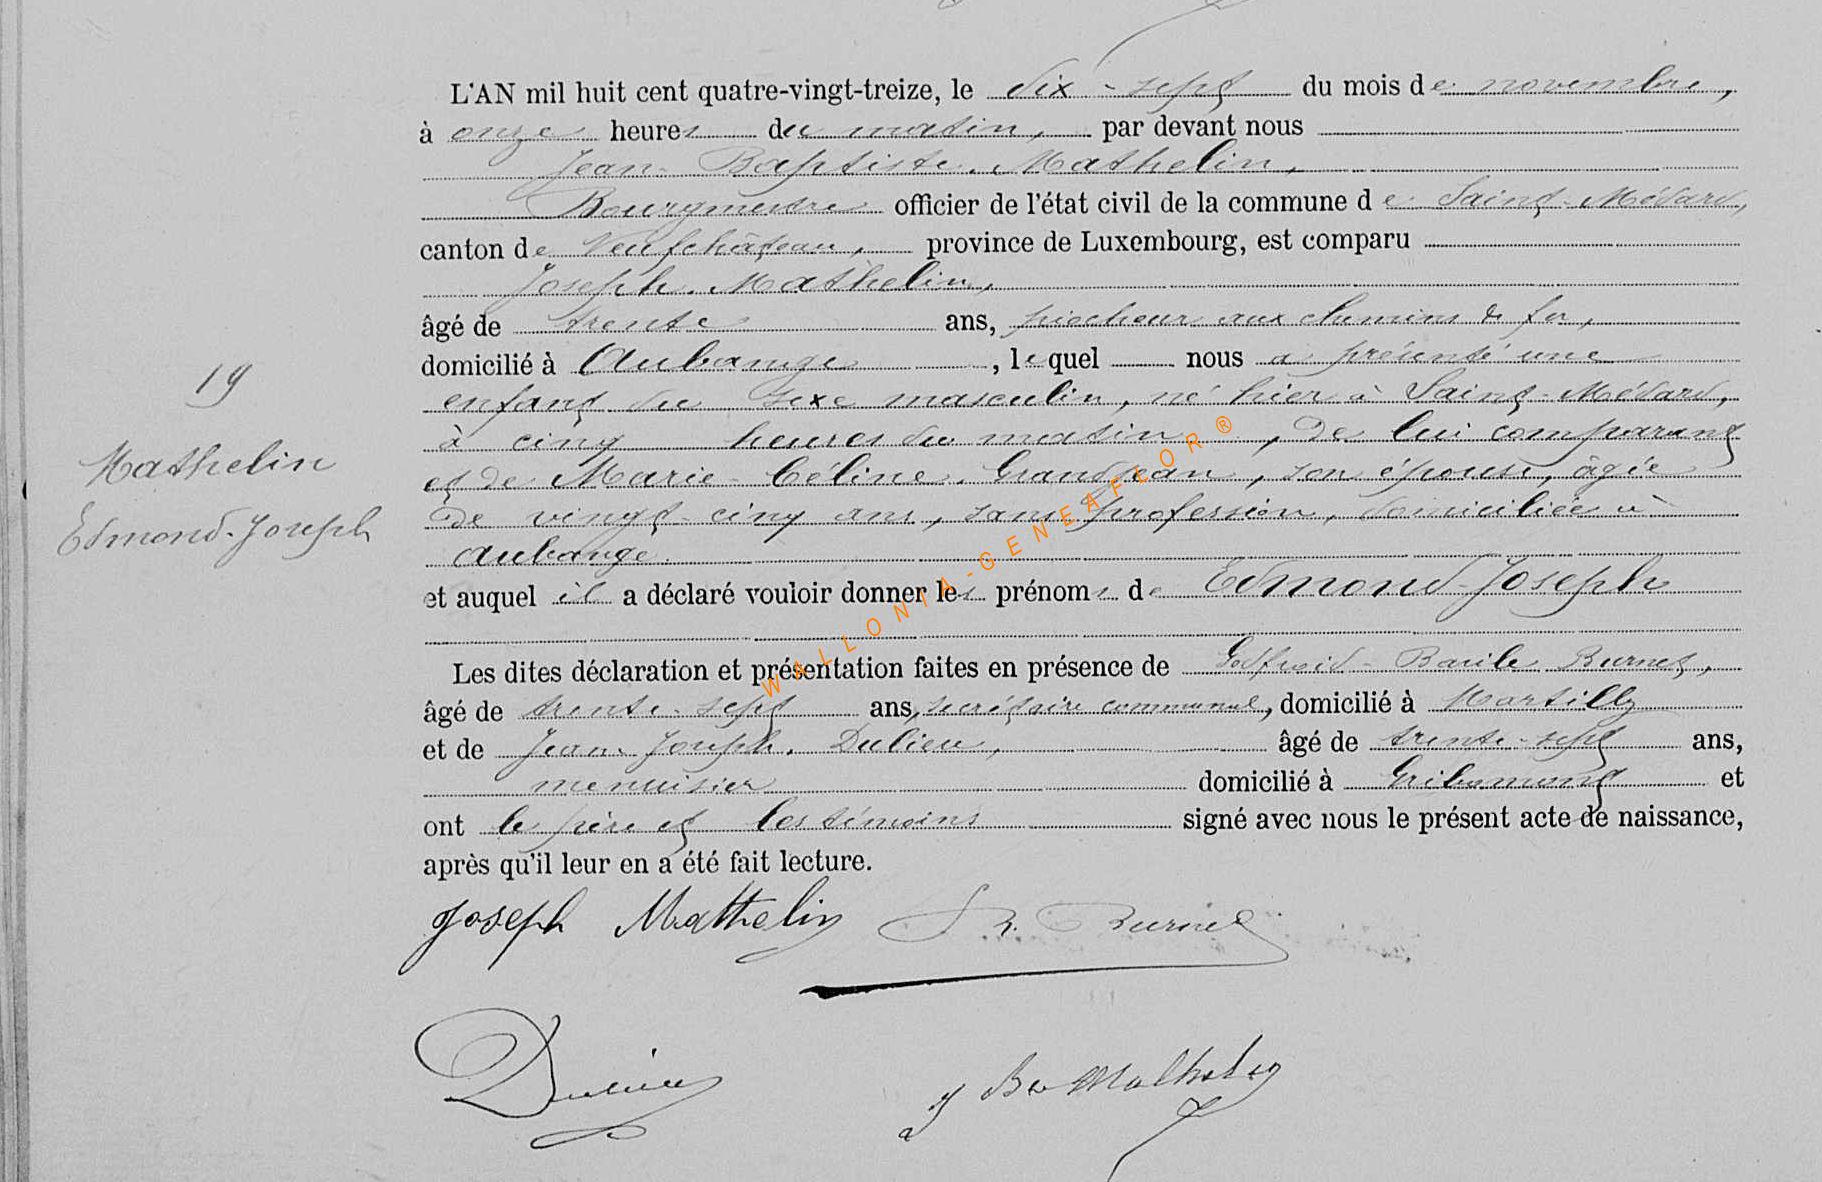 L'AN mil huit cent quatre-vingt-treize, le dix-sept du mois de novembre,
à onze heures du matin, par devant nous
Jean-Baptiste Mathelin,
Bourgmestre officier de l'état civil de la commune de Saint-Médard,
canton de Neufchâteau, province de Luxembourg, est comparu
Joseph Mathelin,
âgé de trente ans, piocheur aux chemins de fer,
domicilié à Aubange, lequel nous a présenté une
19
enfant du sexe masculin, né hier à Saint-Médard,
à cinq heures du matin, de lui comparant
Mathelin
et de Marie-Céline Grandjean, son épouse, âgée
de vingt-cinq ans, sans profession, domiciliée à
Edmond-Joseph
Aubange.
et auquel il a déclaré vouloir donner les prénoms de Edmond-Joseph
Les dites déclaration et présentation faites en présence de Godfroid-Basile Burnet,
âgé de trente-sept ans, secrétaire communal, domicilié à Martilly
et de Jean-Joseph Dulieu, âgé de trente-sept ans,
menuisier domicilié à Gribomont et
ont le père et les témoins signé avec nous le présent acte de naissance,
après qu'il leur en a été fait lecture.
Joseph Mathelin Burnet
Dulieu J Bte Mathelin
WALLONIA-GENEAFLOR®